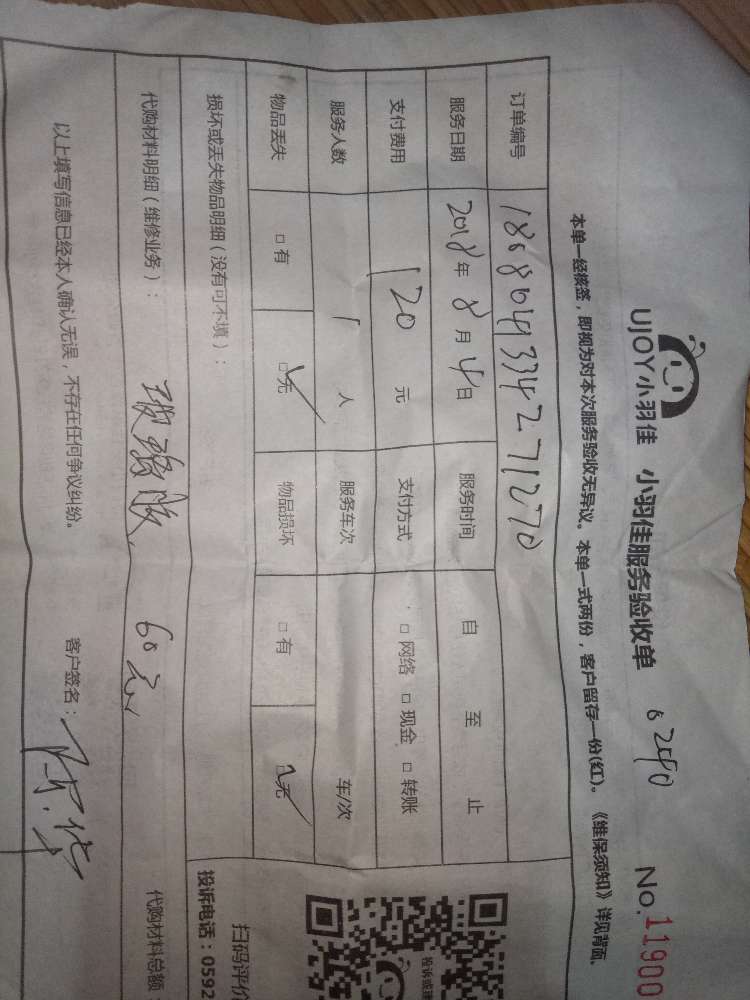 UJOY小羽佳 小羽佳服务验收单 No.11900
本单一经核签，即视为对本次服务验收无异议。本单一式两份，客户留存一份(红)。《维保须知》详见背面。
订单编号
服务日期 2018年8月4日 服务时间 自 至 止
支付费用 120元 支付方式 □网络 □现金 □转账
服务人数 1人 服务车次 车/次
物品丢失 □有 □无 物品损坏 □有 □无
损坏或丢失物品明细（没有可不填）：
扫码评价
投诉电话：0592
代购材料明细（维修业务）： 玻璃胶 60元 代购材料总额
以上填写信息已经本人确认无误，不存在任何争议纠纷。 客户签名：